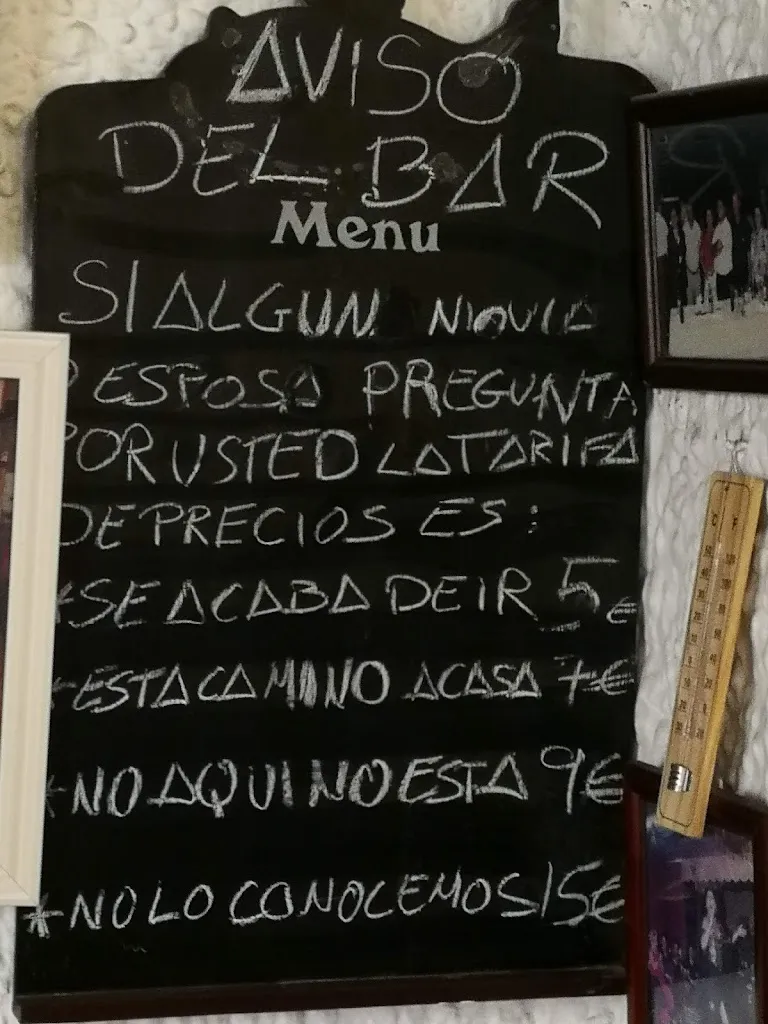 AVISO
DEL BAR
Menu
SI ALGUN NIOVIA
O ESPOSA PREGUNTA
POR USTED LA TARIFA
DE PRECIOS ES:
*SE ACABA DE IR 5€
*ESTA CAMINO A CASA 7€
*NO AQUI NO ESTA 9€
*NO LO CONOCEMOS 15€
C F